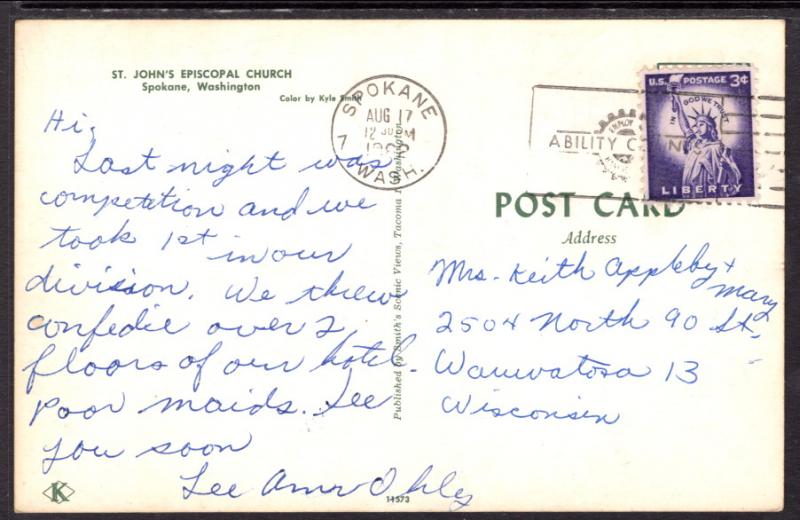 ST. JOHN'S EPISCOPAL CHURCH
Spokane, Washington
Color by Kyle Smith
Hi,
Last night was
competition and we
took 1st in our
division. We threw
confedie over 2
floors of our hotel.
Poor maids. See
you soon
Lee Ann Ohley
K
11573
Published by Smith's Scenic Views, Tacoma Washington
SPOKANE
WASH.
AUG 17
7
ABILITY
U.S. POSTAGE 3¢
IN GOD WE TRUST
LIBERTY
POST CARD
Address
Mrs. Keith Appleby +
Mary
2504 North 90 St.
Wauwatosa 13
Wisconsin